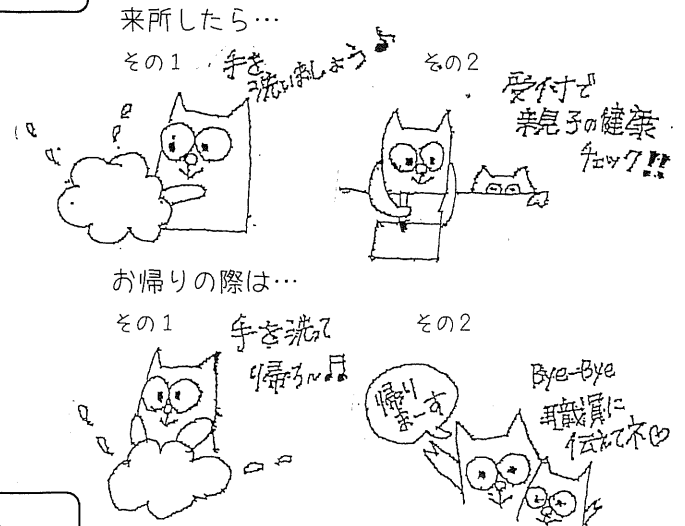 来所したら…
その1
手を
洗いましょう♪
その2
受付で
親子の健康
チェック!!
お帰りの際は…
その1
手を洗って
帰ろ〜♫
その2
帰り
まーす
Bye-Bye
職員に
伝えてネ♡